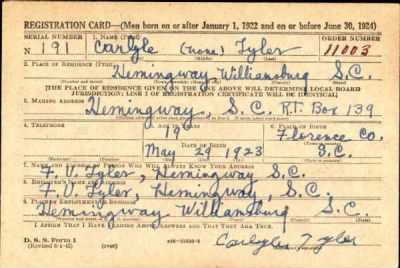 REGISTRATION CARD—(Men born on or after January 1, 1922 and on or before June 30, 1924)
SERIAL NUMBER 1. NAME (Print) ORDER NUMBER
N 191 Carlyle (none) Tyler 11003
(First) (Middle) (Last)
2. PLACE OF RESIDENCE (Print)
Hemingway Williamsburg S.C.
[THE PLACE OF RESIDENCE GIVEN ON THE LINE ABOVE WILL DETERMINE LOCAL BOARD
JURISDICTION; LINE 2 OF REGISTRATION CERTIFICATE WILL BE IDENTICAL]
3. MAILING ADDRESS
Hemingway, S.C. RT. Box 139
4. TELEPHONE 5. AGE IN YEARS 6. PLACE OF BIRTH
19 Florence Co.
DATE OF BIRTH
May 29 1923 S.C.
7. NAME AND ADDRESS OF PERSON WHO WILL ALWAYS KNOW YOUR ADDRESS
F. V. Tyler, Hemingway S.C.
8. EMPLOYER'S NAME AND ADDRESS
F. V. Tyler, Hemingway, S.C.
9. PLACE OF EMPLOYMENT OR BUSINESS
Hemingway Williamsburg S.C.
I AFFIRM THAT I HAVE VERIFIED ABOVE ANSWERS AND THAT THEY ARE TRUE.
D. S. S. Form 1 (over) Carlyle Tyler